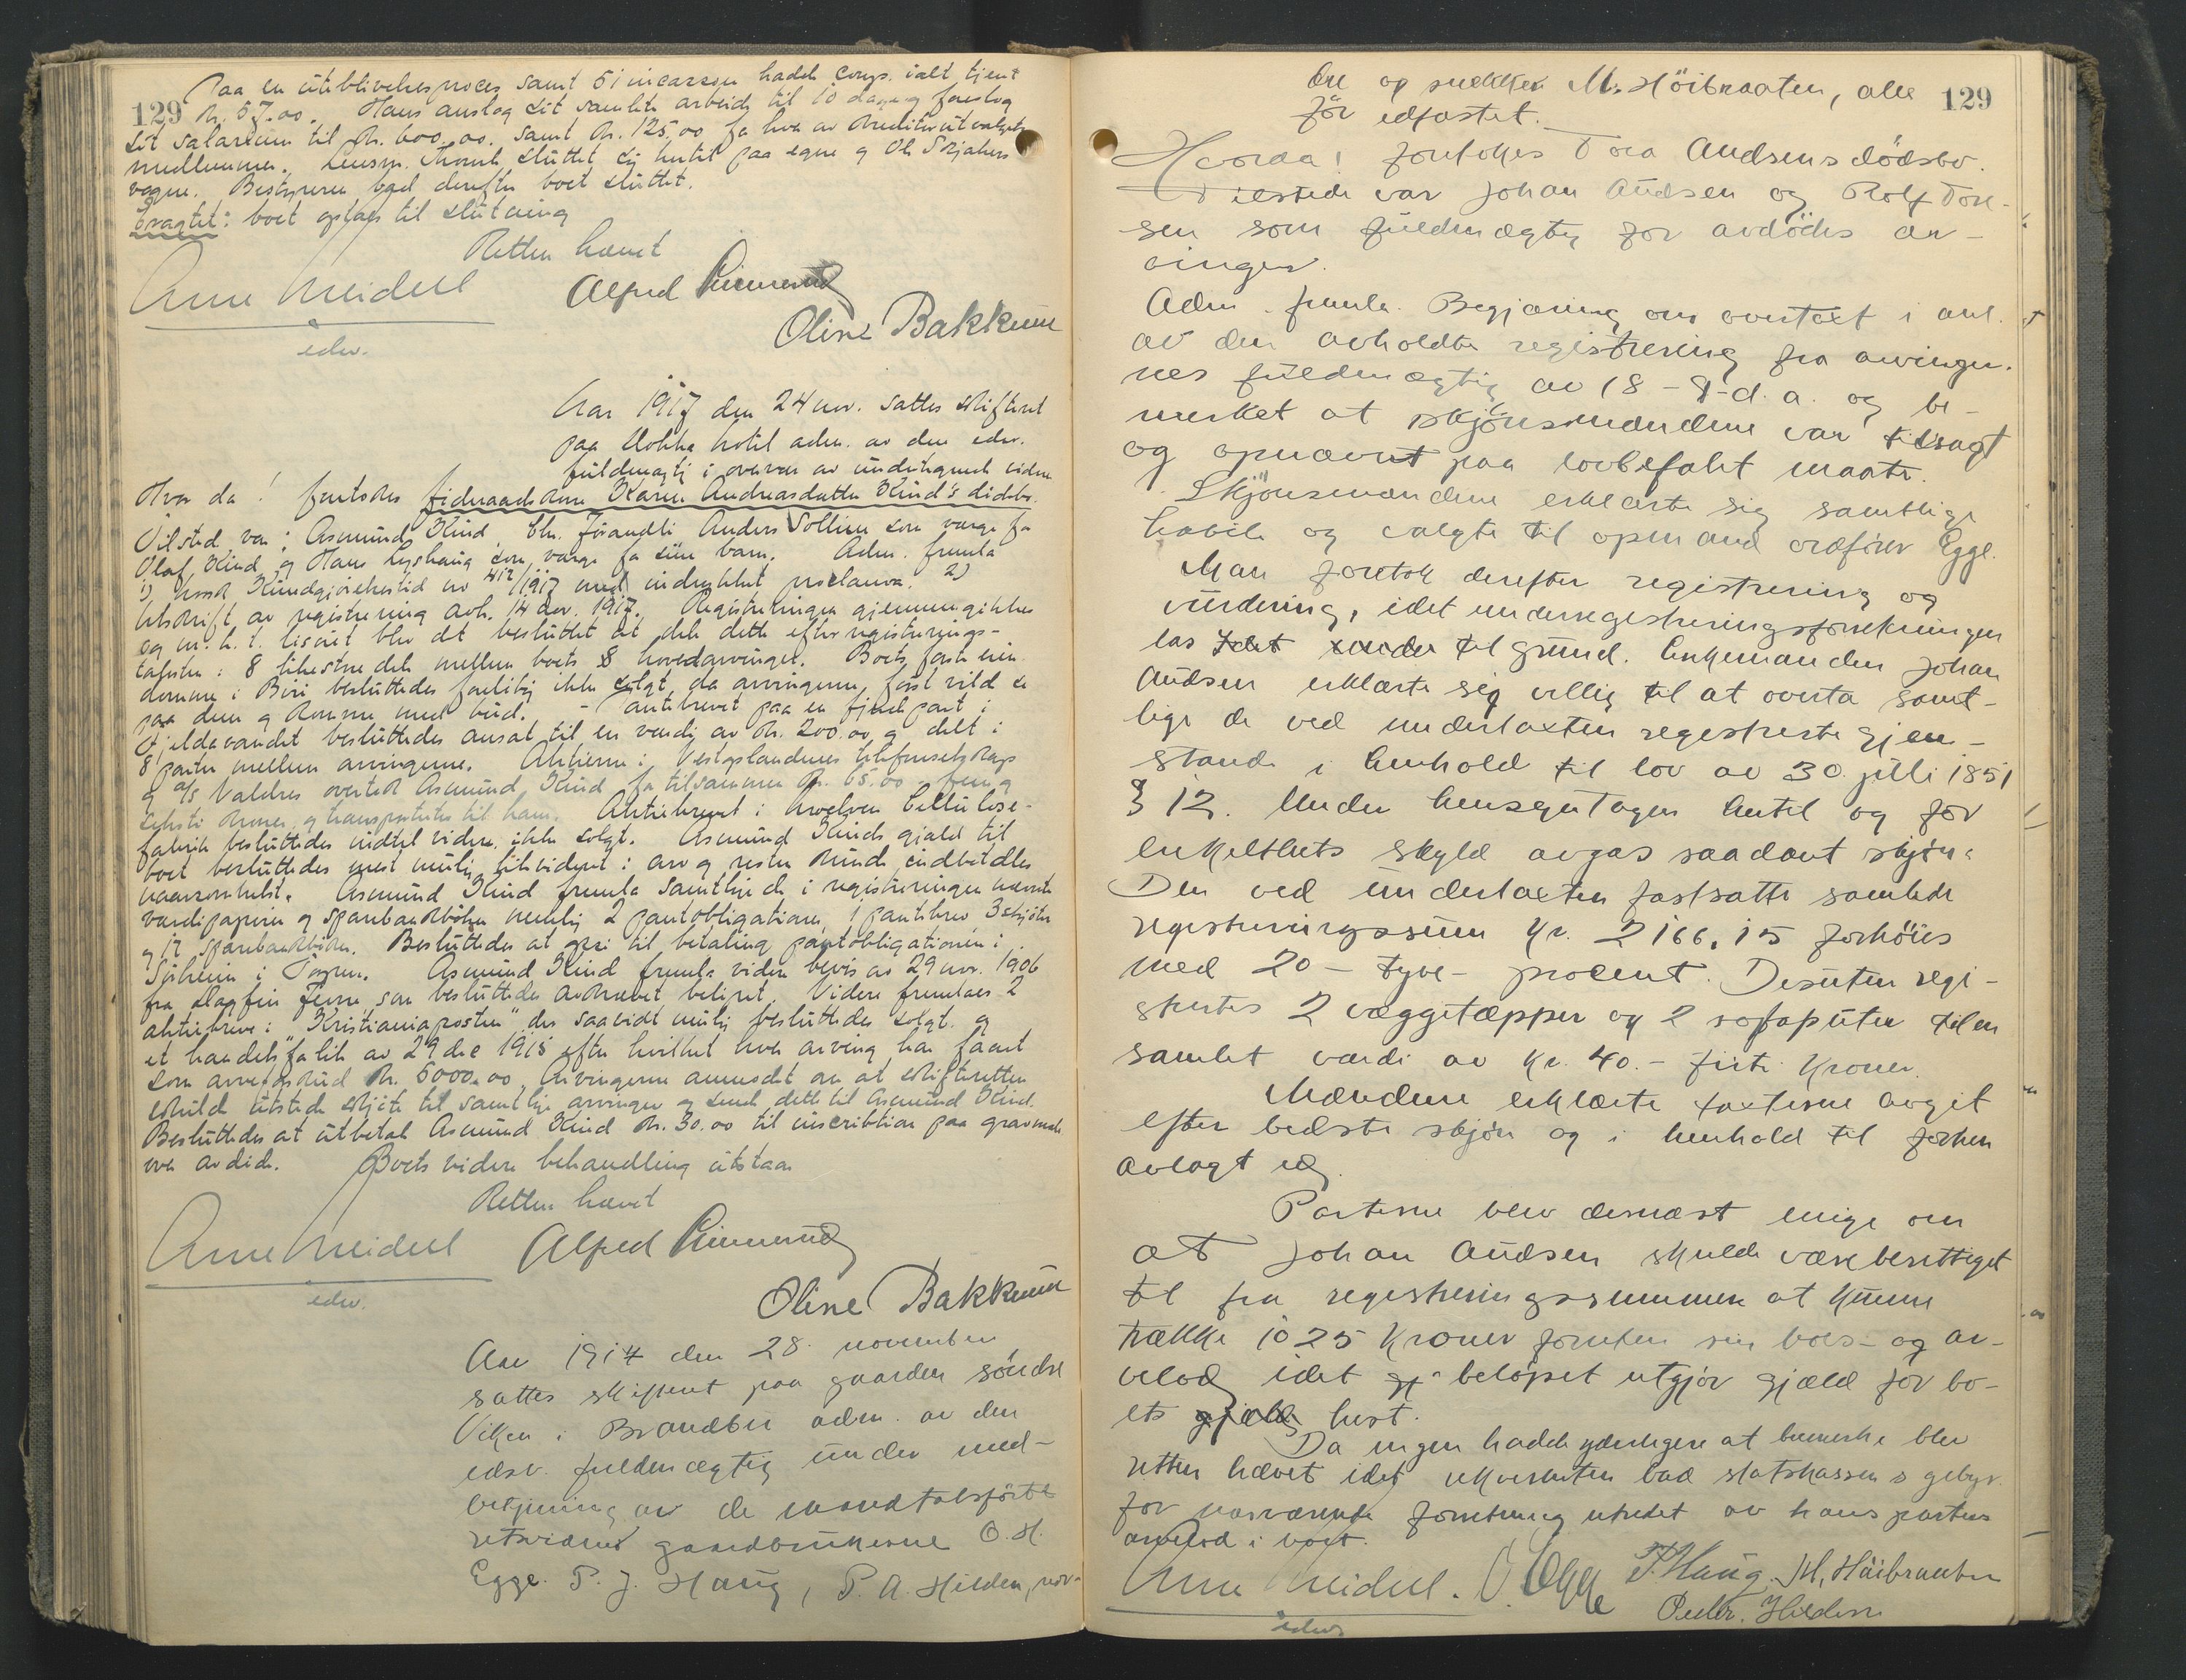 129
Paa en uteblivelsesproces samt 51 incasson hadde comp. ialt tjent
kr. 57.00. Hans anslog sit samlede arbeide til 10 dage og foreslog
sit salarium til kr. 600.00. samt kr. 125.00 for hver av kreditorutvalgets
medlemmer. Lensm. sluttet sig hertil paa egne og Ol.
vegne. Bestyreren bad derefter boet sluttet.
boet optaes til slutning
Retten hævet
Arne Meidell
Alfred
edsv.
Oline Bakkum
Aar 1917 den 24 nov. sattes skifteret
paa hotel adm. av den edsv.
fuldmægtig i overvær av undertegnede vidner
Hvor da! foretokes Karen Andreasdatter Kind's dødsbo.
Tilstede var: Asmund Kind, Anders Sollien som verge for
Olaf Kind og Hans som verge for sine barn. Adm. fremla
1) norsk Kundgjørelsestid nr 412/1917 med indrykket proclama. 2)
Utskrift av registrering avh. 14 nov. 1917. Registreringen gjennemgikkes
og m. h. t. blev det besluttet at dele dette efter registrerings-
taksten: 8 like store dele mellem boets 8 hovedarvinger. Boets faste eien-
domme i Biri besluttedes foreløbig ikke solgt, da arvingerne først vilde se
paa dem og komme med bud. - Pantebrevet paa en fjerdepart i
Fjeldavandet besluttedes ansat til en verdi av kr. 200.00 og delt i
8 parter mellem arvingerne. Aktierne i Vestoplandenes telefonselskap
og A/S Valdres overtok Asmund Kind for tilsammen kr. 65.00 - fem og
seksti kroner og transporteres til ham. Aktiebrevet i cellulose-
fabrik besluttedes indtil videre ikke solgt. Asmund Kinds gjæld til
boet besluttedes mest mulig likvidert i arv og resten kunde indbetales
naarsomhelst. Asmund Kind fremla samtlige de i registreringen nævnte
værdipapirer og sparebankbøker nemlig 2 pantobligationer, 1 pantebrev 3 skjøter
og 12 sparebankbøker. Besluttedes at opsi til betaling pantobligationen i
i Asmund Kind fremla videre bevis av 29 nov. 1906
fra som besluttedes avkrævet beløpet. Videre fremlaes 2
aktiebreve i "Kristianiaposten" der saavidt mulig besluttedes solgt og
et av 29 dec 1915 efter hvilket hver arving har faaet
som arveforskud kr. 5000.00. Arvingerne anmodet om at skifteretten
skulde utstede skjøte til samtlige arvinger og sende dette til Asmund Kind.
Besluttedes at utbetale Asmund Kind kr. 30.00 til inscribtion paa gravmæle
over avdøde. Boets videre behandling utstaar
Retten hævet
Arne Meidell
Alfred
edsv.
Oline Bakkum
Aar 1917 den 28. november
sattes skifteret paa gaarden søndre
Viken i Brandbu adm. av den
edsv. fuldmægtig under med-
betjening av de mandtalsførte
retsvidner gaardbrukerne O. H.
Egge. P. J. Haug, P. A. Hilden, nor-
129
dre og snekker M. Höibraaten, alle
før edfæstet.
Hvorda! foretokes Tora Audsens dödsbo.
Tilstede var Johan Audsen og Rolf Tore-
sen som fuldmægtig for avdödes ar-
vinger.
Adm. fremla Begjæring om overtaxt i anl.
av den avholdte registrering fra arvinger-
nes fuldmægtig av 18-8-d.a. og be-
merket at skjönsmændene var tilsagt
og opnævnt paa lovbefalet maate.
Skjönsmændene erklærte sig samtlige
habile og valgte til opmand ordfører Egge.
Man foretok derefter registrering og
vurdering, idet underregistreringsforretningen
las til grund. Enkemanden Johan
Audsen erklærte sig villig til at overta samt-
lige de ved undertaxten registrerte gjen-
stande i henhold til lov av 30. juli 1851
§ 12. Under hensyntagen hertil og for
enkelthets skyld avgas saadant skjön:
Den ved undertaxten fastsatte samlede
registreringssum kr. 2166.15 forhöies
med 20 - tyve - procent. Desuten regi-
strertes 2 væggetæpper og 2 sofaputer til en
samlet værdi av kr. 40. - firti kroner.
Mændene erklærte taxterne avgit
efter bedste skjön og i henhold til forhen
avlagt ed.
Parterne blev dernæst enige om
at Johan Audsen skulde være berettiget
til fra registreringssummen at kunne
trække 1025 kroner foruten sin boes- og ar-
velod idet beløpet utgjör gjæld for bo-
ets
Da ingen hadde yderligere at bemerke blev
retten hævet idet rekvirenten bad statskassens gebyr
for nærværende forretning utredet av hans parters
arvelod i boet.
Arne Meidell. O. Egge P. Haug. M. Höibraaten
edsv.
Peder. Hilden